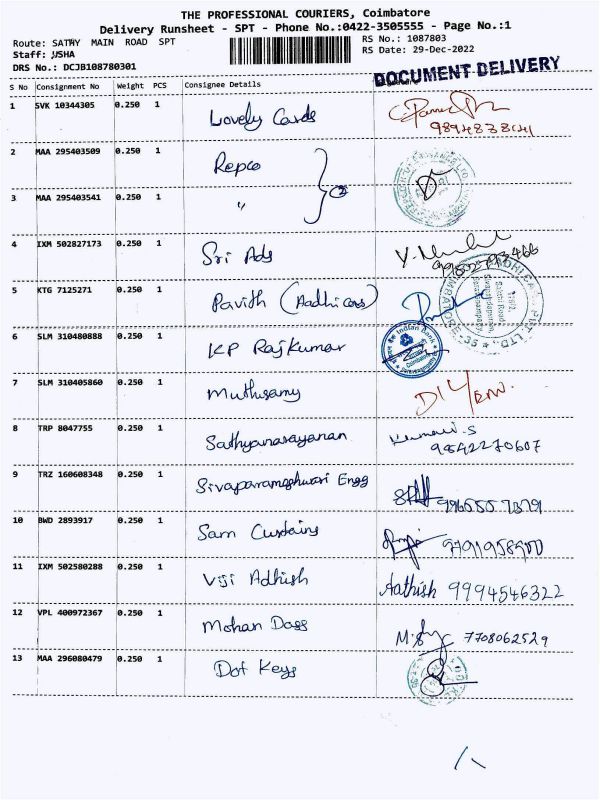 THE PROFESSIONAL COURIERS, Coimbatore
Delivery Runsheet - SPT - Phone No.:0422-3505555 - Page No.:1
Route: SATHY MAIN ROAD SPT
RS No.: 1087803
Staff: JUSHA
RS Date: 29-Dec-2022
DRS No.: DCJB108780301
DOCUMENT DELIVERY
S No Consignment No Weight PCS Consignee Details
1 SVK 10344305 0.250 1 Lovely Cards
2 MAA 295403509 0.250 1 Repco
3 MAA 295403541 0.250 1 " 2
4 IXM 502827173 0.250 1 Sri Ads
5 KTG 7125271 0.250 1 Pavith (Aadhicars)
6 SLM 310480888 0.250 1 KP Rajkumar
Indian Bank
7 SLM 310405860 0.250 1 Muthusamy
8 TRP 8047755 0.250 1 Sathyanarayanan Kumari.S
9842270607
9 TRZ 160608348 0.250 1 Sivaparameshwari Engg
10 BWD 2893917 0.250 1 Sam Curtains
11 IXM 502580288 0.250 1 Viji Adhish Aathish 9994546322
12 VPL 400972367 0.250 1 Mohan Dass 7708062529
13 MAA 296080479 0.250 1 Dot Keys